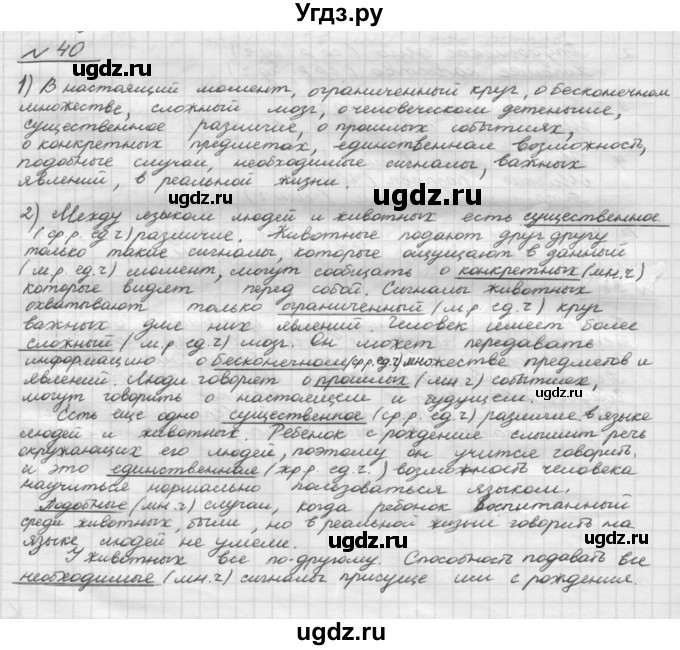 Угдз.ру
N 40
1) В настоящий момент, ограниченный круг, о бесконечном
множестве, сложный мозг, о человеческом детеныше,
существенное различие, о прошлых событиях,
о конкретных предметах, единственная возможность,
подобные случаи, необходимые сигналы, важных
явлений, в реальной жизни.
2) Между языком людей и животных есть существенное
(ср.р. ед.ч) различие. Животные подают друг другу
только такие сигналы, которые ощущают в данный
(м.р. ед.ч) момент, могут сообщать о конкретных (мн.ч)
которые видят перед собой. Сигналы животных
охватывают только ограниченный (м.р. ед.ч) круг
важных для них явлений. Человек имеет более
сложный (м.р. ед.ч) мозг. Он может передавать
информацию о бесконечном (ср.р. ед.ч) множестве предметов и
явлений. Люди говорят о прошлых (мн.ч) событиях,
могут говорить о настоящем и будущем.
Есть еще одно существенное (ср.р. ед.ч) различие в языке
людей и животных. Ребенок с рождение слышит речь
окружающих его людей, поэтому он учится говорить.
и это единственная (жр.р. ед.ч.) возможность человека
научиться нормально пользоваться языком.
Подобные (мн.ч) случаи, когда ребенок воспитанный
среди животных, были, но в реальной жизни говорить на
языке людей не умели.
У животных все по-другому. Способность подавать все
необходимые (мн.ч) сигналы присуще им с рождения.
ugdz.ru
ugdz.ru
ugdz.ru
ugdz.ru
ugdz.ru
ugdz.ru
ugdz.ru
ugdz.ru
ugdz.ru
ugdz.ru
ugdz.ru
ugdz.ru
ugdz.ru